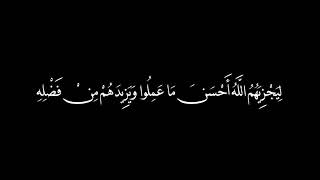 لِيَجْزِيَهُمُ اللَّهُ أَحْسَنَ مَا عَمِلُوا وَيَزِيدَهُمْ مِنْ فَضْلِهِ